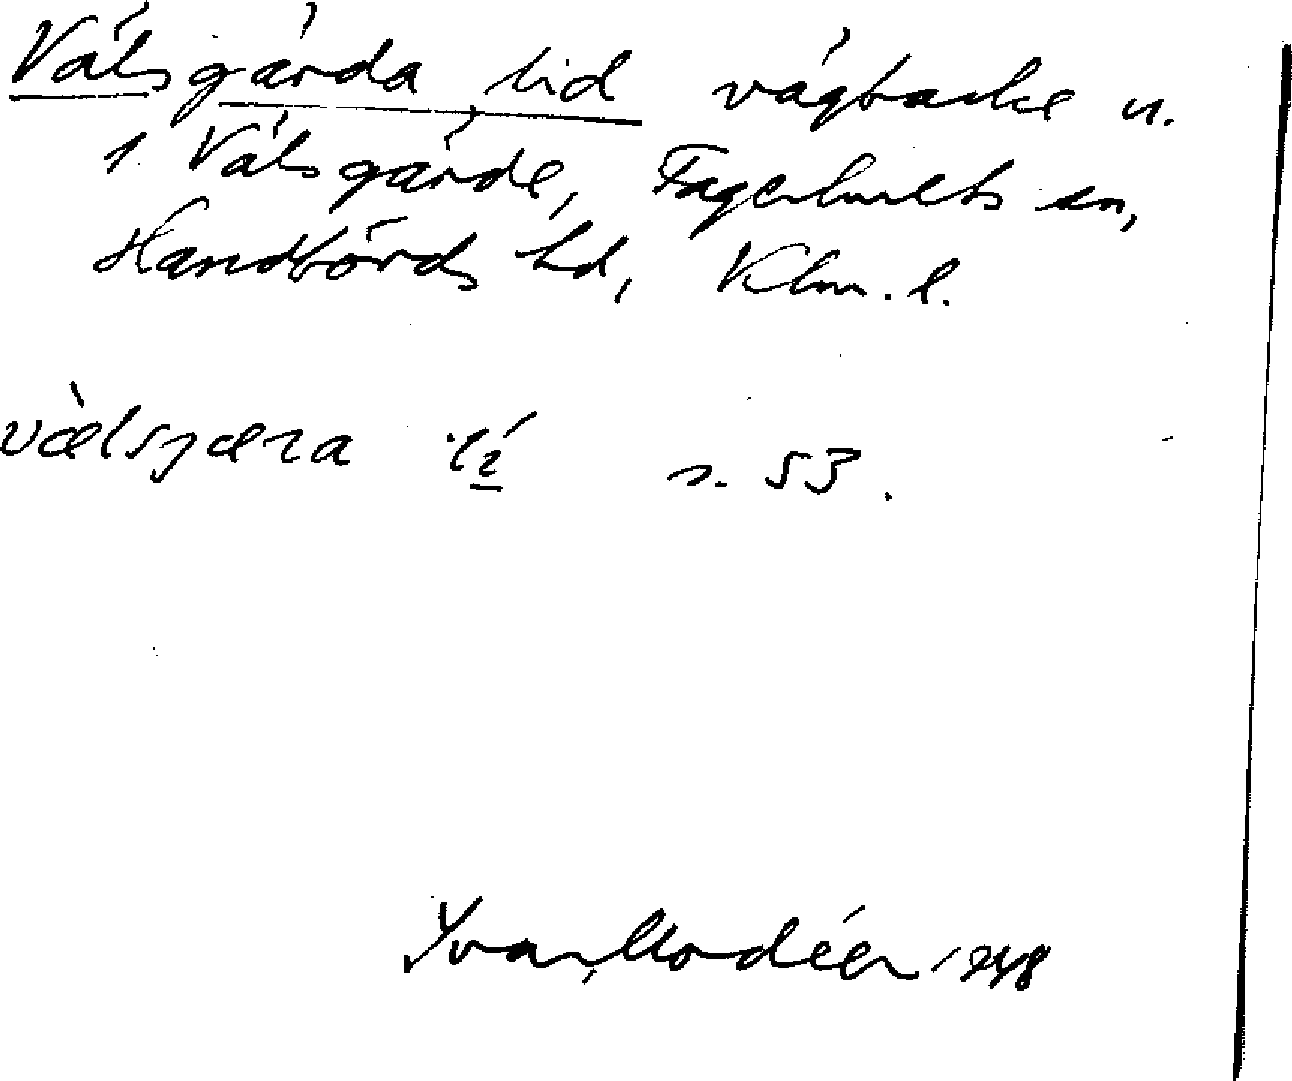 Välsgärda lid vägbacke u.
1. Välsgärde, Fagerhults sn,
Handbörds hd, Klm. l.
vælsjæra s. 53.
Ivar Modéer 1948